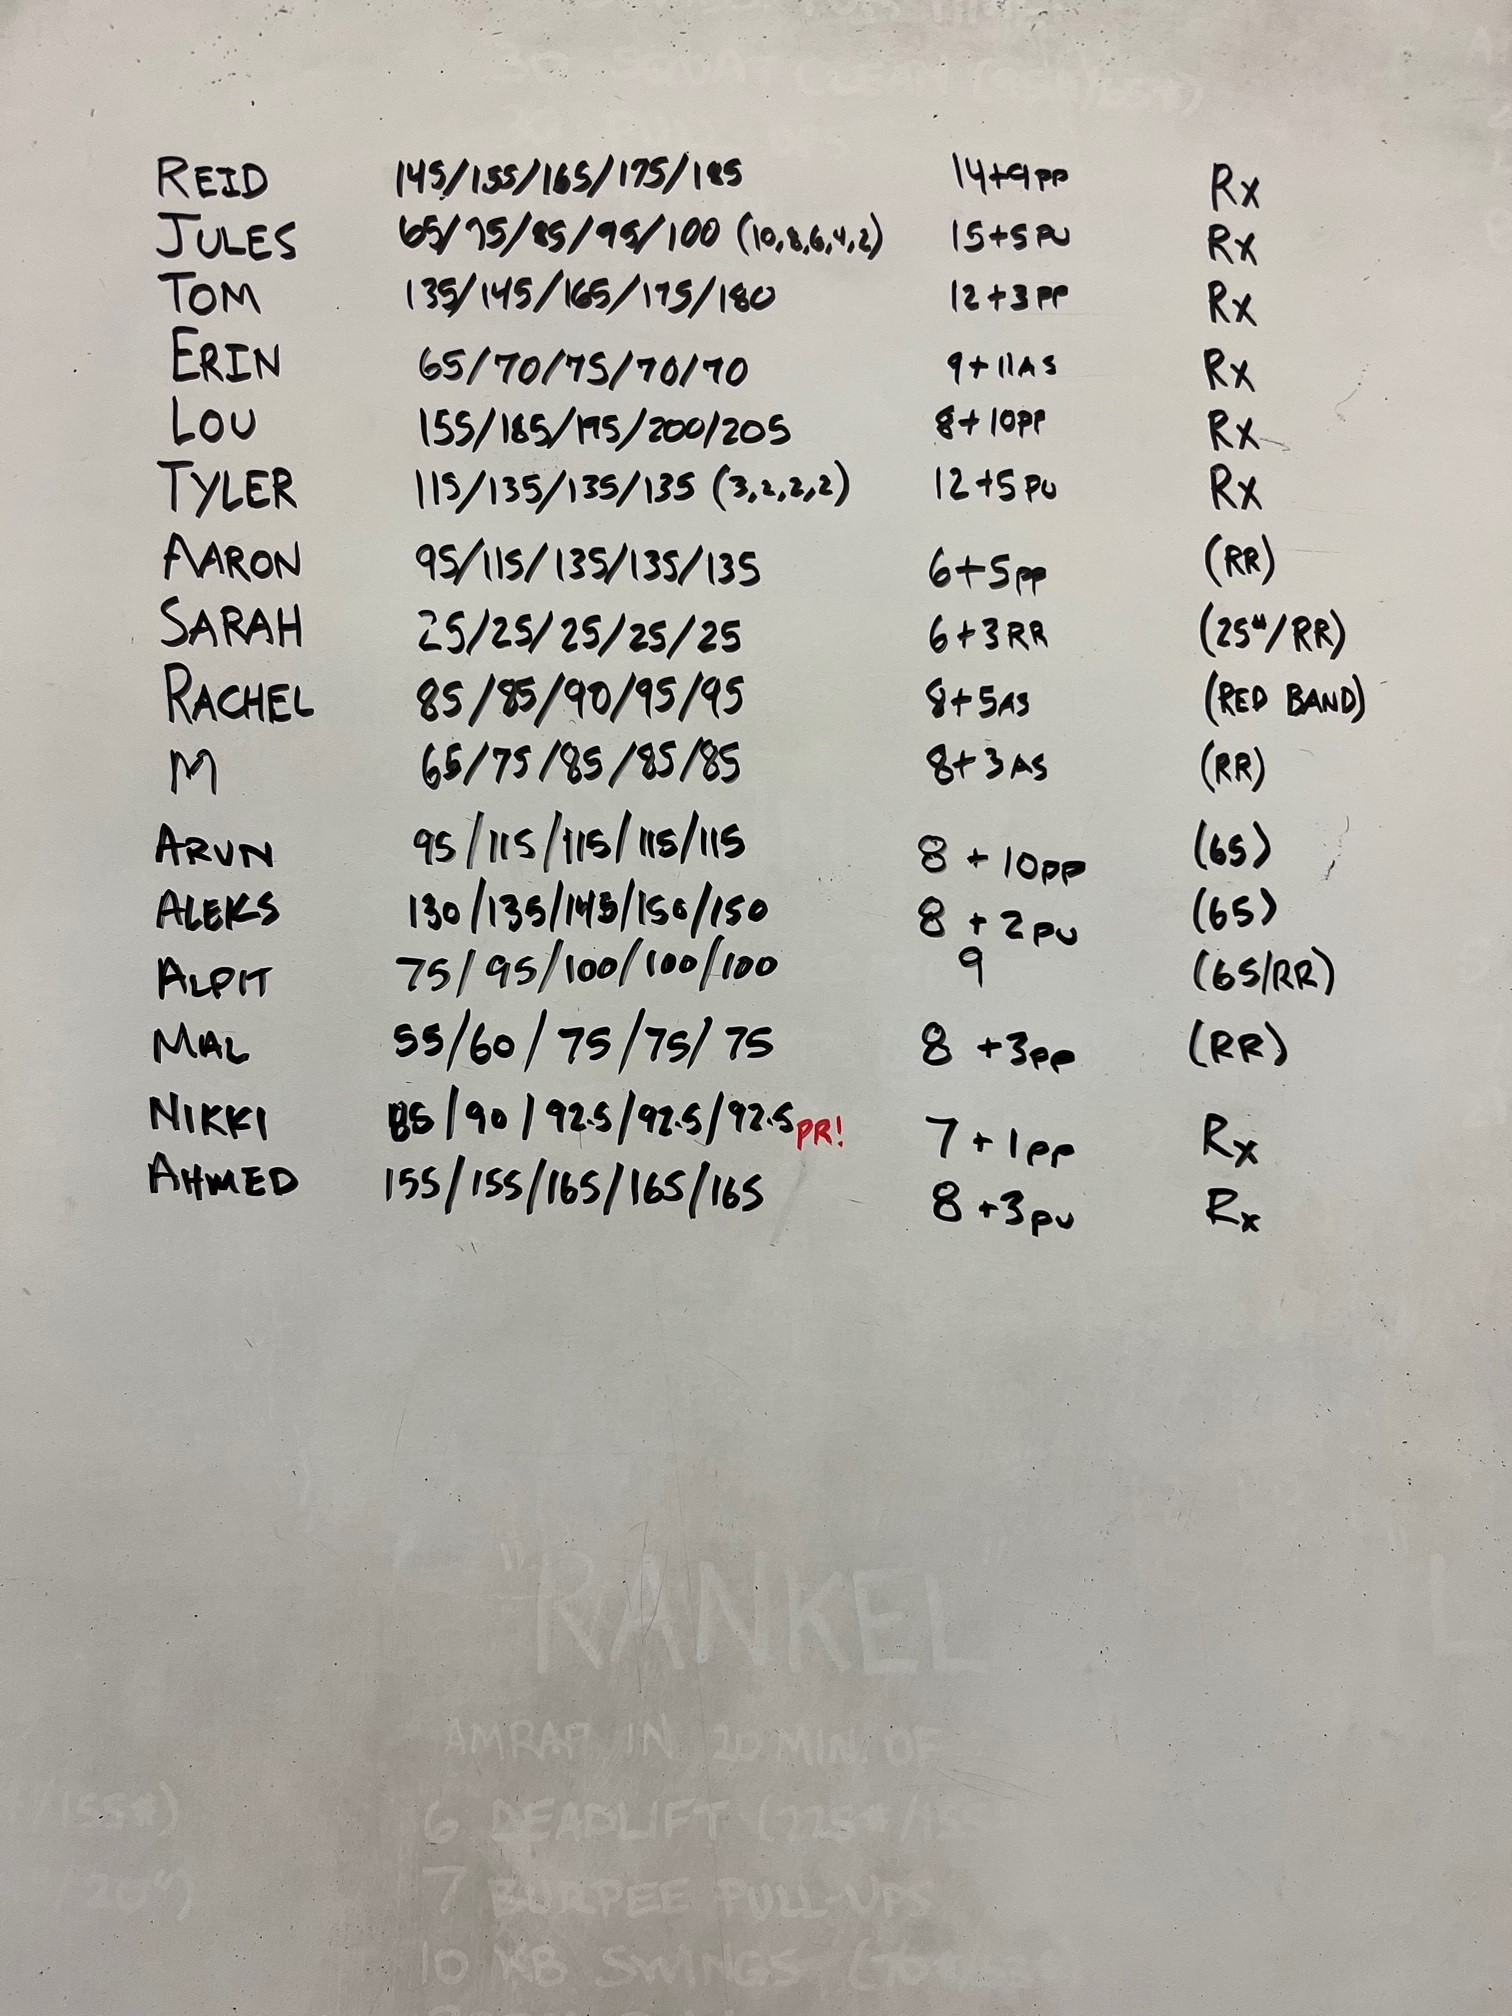 30 SQUAT CLEAN
REID 145/155/165/175/185 14+9PP Rx
JULES 65/75/85/95/100 (10,8,6,4,2) 15+5PU Rx
TOM 135/145/165/175/180 12+3PP Rx
ERIN 65/70/75/70/70 9+11AS Rx
LOU 155/185/195/200/205 8+10PP Rx
TYLER 115/135/135/135 (3,2,2,2) 12+5PU Rx
AARON 95/115/135/135/135 6+5PP (RR)
SARAH 25/25/25/25/25 6+3RR (25#/RR)
RACHEL 85/85/90/95/95 8+5AS (RED BAND)
M 65/75/85/85/85 8+3AS (RR)
ARUN 95/115/115/115/115 8+10PP (65)
ALEKS 130/135/145/150/150 8+2PU (65)
ALPIT 75/95/100/100/100 9 (65/RR)
MAL 55/60/75/75/75 8+3PP (RR)
NIKKI 85/90/92.5/92.5/92.5 PR! 7+1PP Rx
AHMED 155/155/165/165/165 8+3PU Rx
"RANKEL"
AMRAP IN 20 MIN. OF
/155#) 6 DEADLIFT (225#/155
/20") 7 BURPEE PULL-UPS
10 KB SWINGS